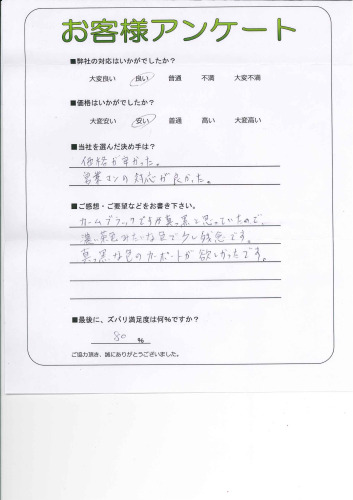 お客様アンケート
■弊社の対応はいかがでしたか？
大変良い 良い 普通 不満 大変不満
■価格はいかがでしたか？
大変安い 安い 普通 高い 大変高い
■当社を選んだ決め手は？
価格が安かった。
営業マンの対応が良かった。
■ご感想・ご要望などをお書き下さい。
カームブラックですが真っ黒と思っていたので、
濃い茶色みたいな色で少し残念です。
真っ黒な色のカーポートが欲しかったです。
■最後に、ズバリ満足度は何％ですか？
80 %
ご協力頂き、誠にありがとうございました。